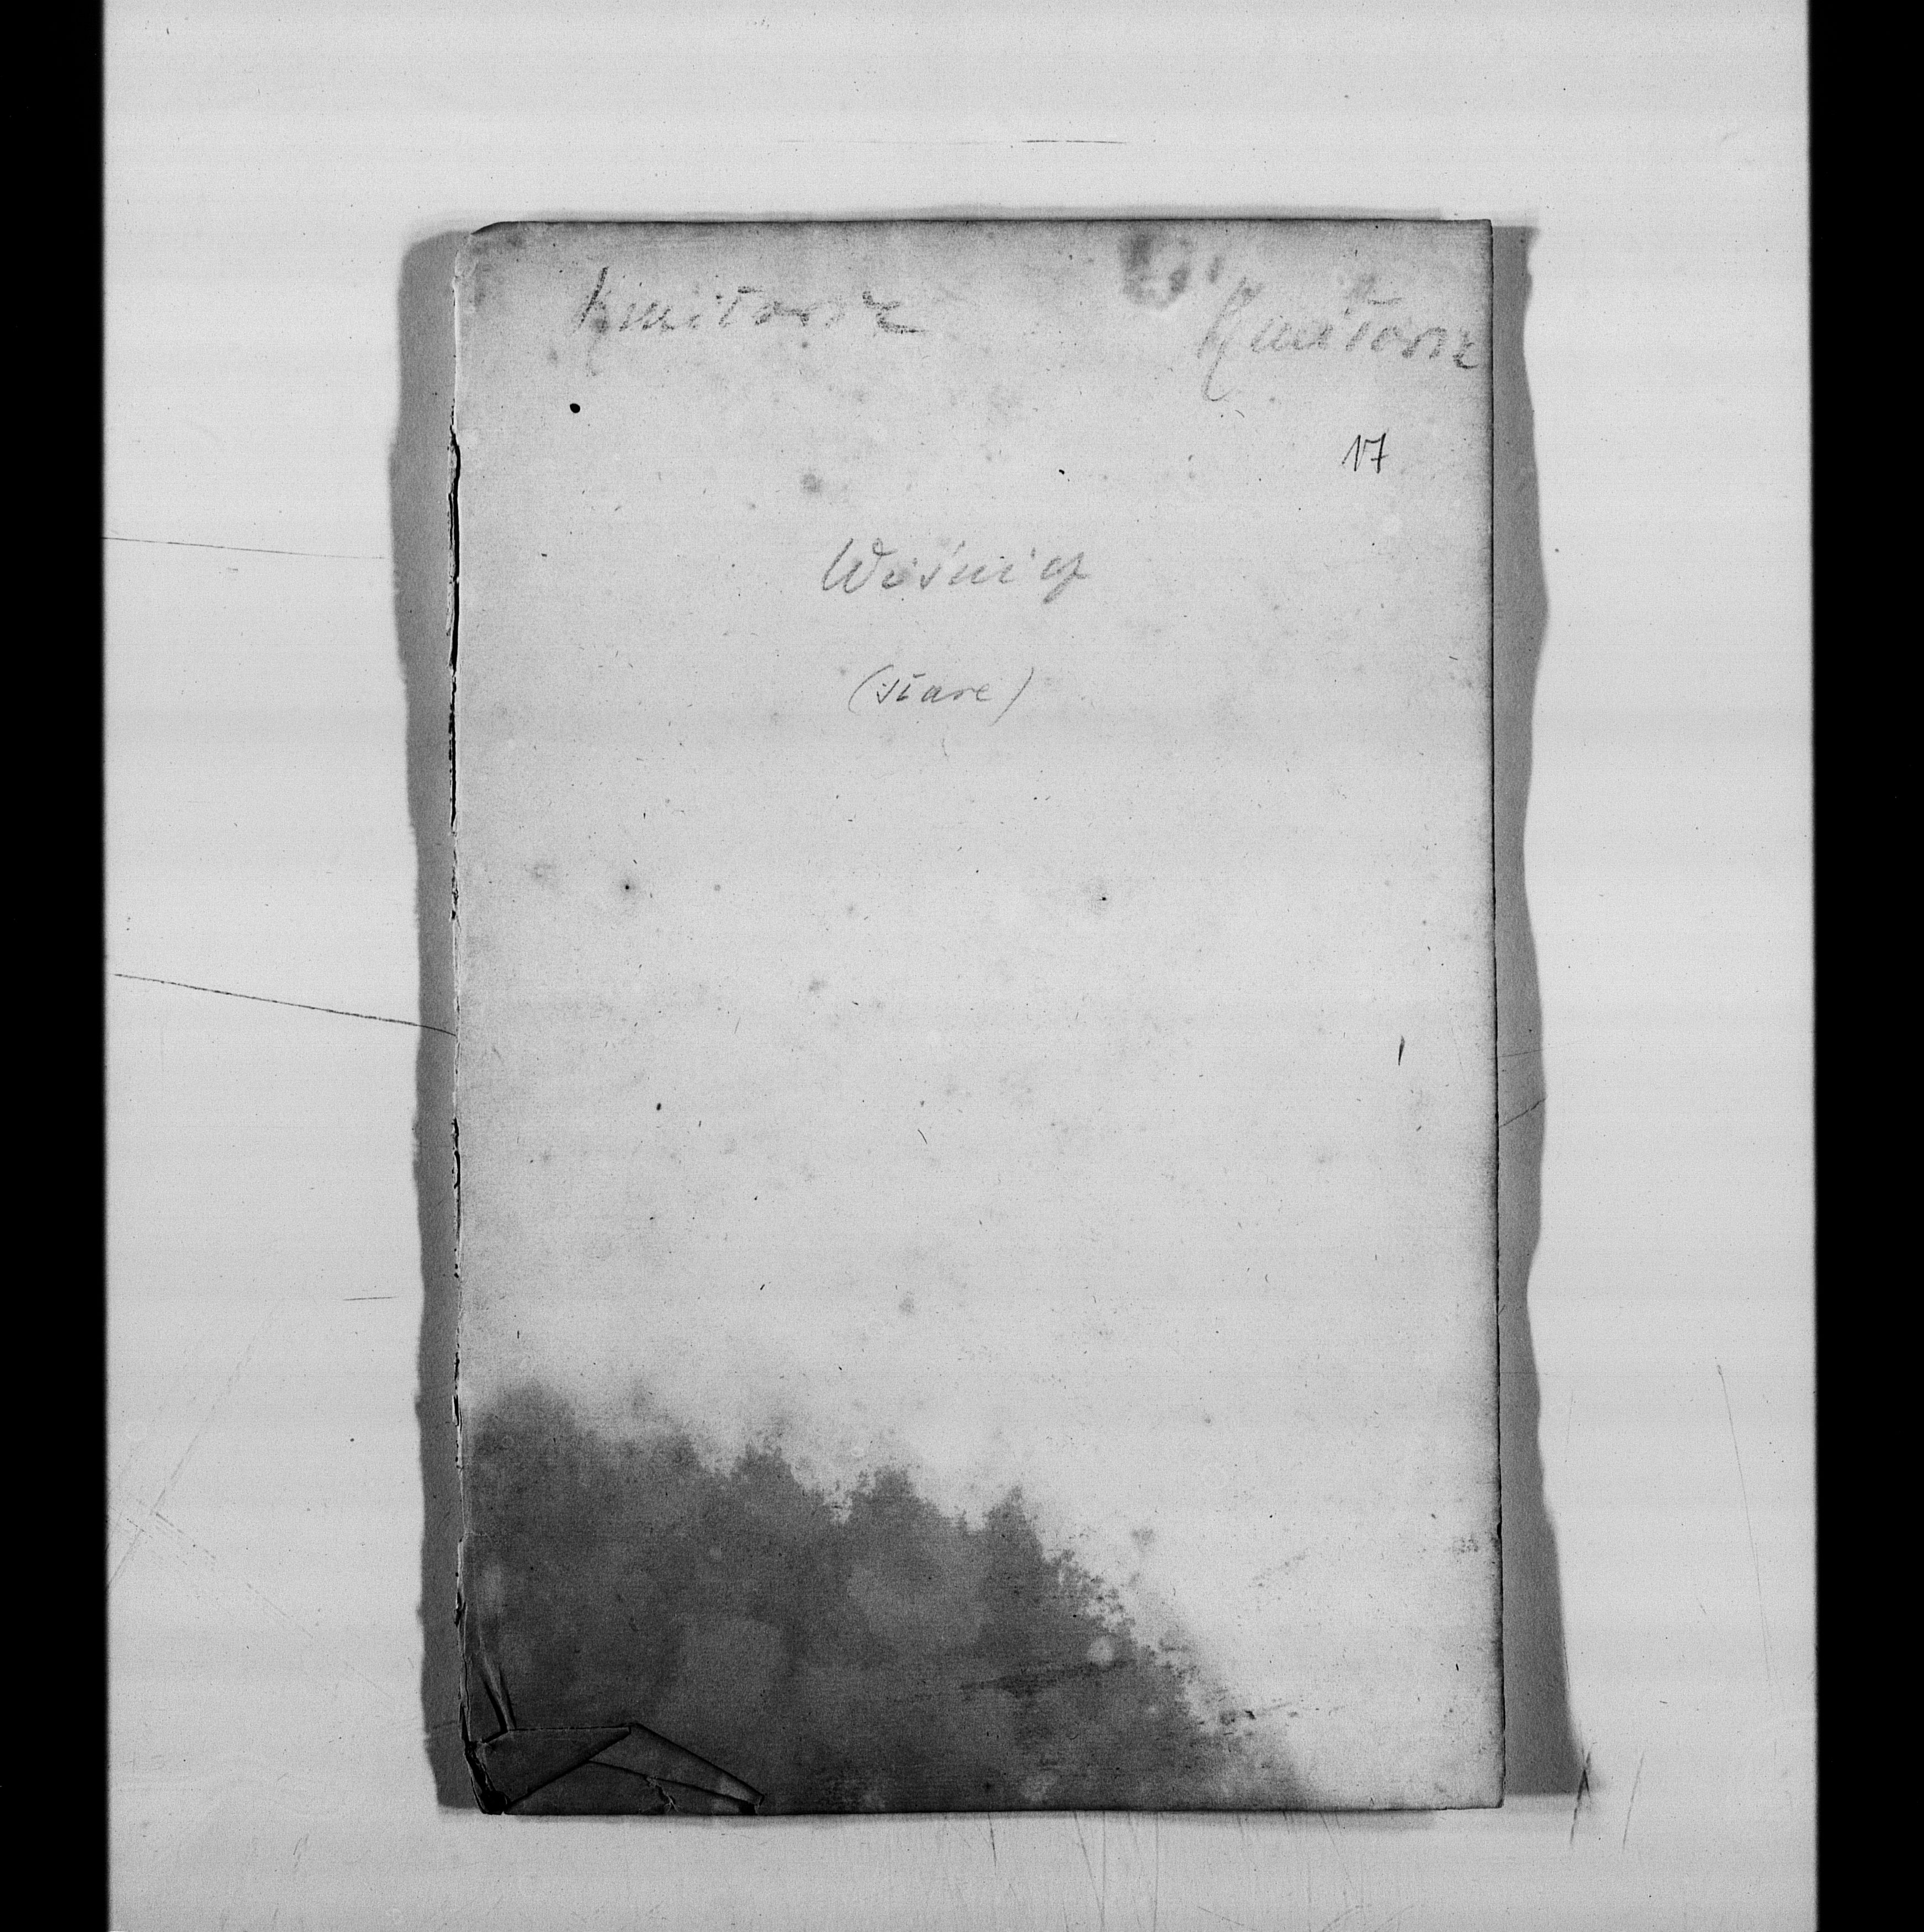 Kmitowie
Kmitowie
17
Wiśnicz
(stare)